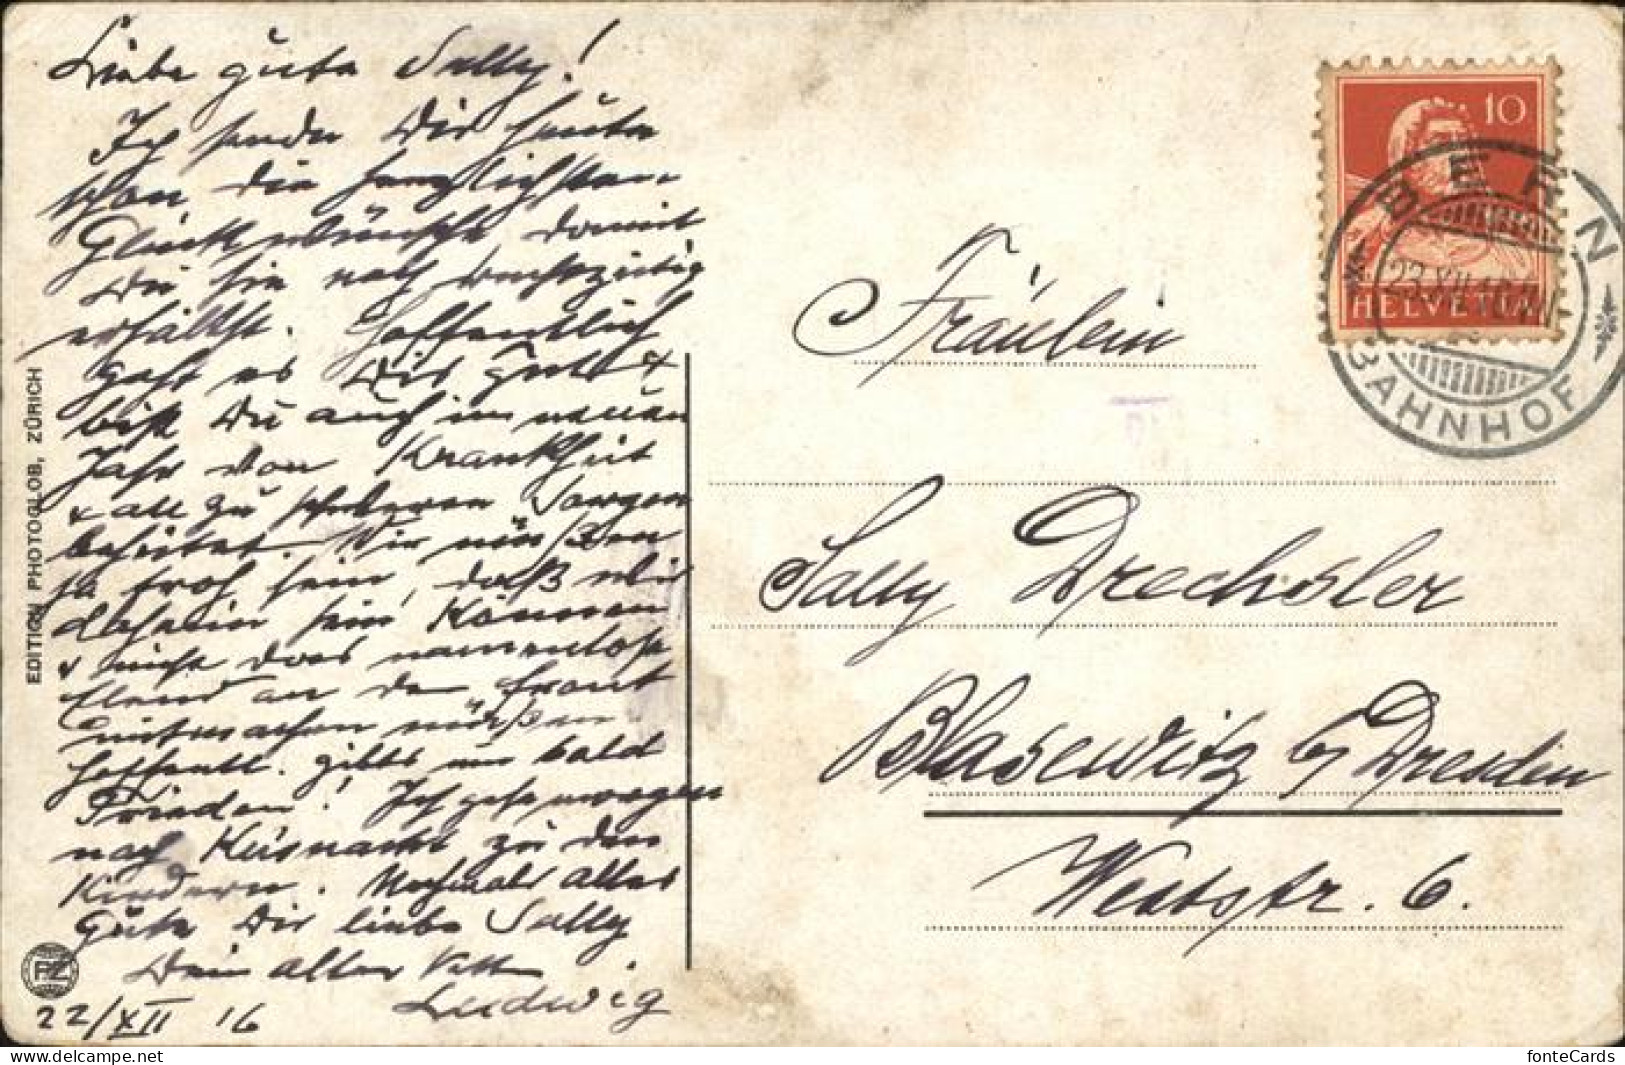 Liebe gute Sally!
Ich sende Dir heute
schon die herzlichsten
Glückwünsche damit
Du sie noch rechtzeitig
erhältst. Hoffentlich
geht es Dir gut &
bist Du auch im neuen
Jahr von Krankheit
& all zu schweren Sorgen
behütet. Wir müßen
ja froh sein, daß wir
daheim sein können
& nicht das namenlose
Elend an der Front
mitmachen müßen
hoffentl. gibts nun bald
Frieden! Ich gehe morgen
nach Küsnacht zu den
Kindern. Nochmals alles
Gute Dir liebe Sally
Dein alter Vett
Ludwig
22/XII 16
EDITION PHOTOGLOB, ZÜRICH
PZ
10
HELVETIA
BERN
23.XII.16
BAHNHOF
Fräulein
Sally Drechsler
Blasewitz b/ Dresden
Weststr. 6.
fonteCards
https://www.delcampe.net